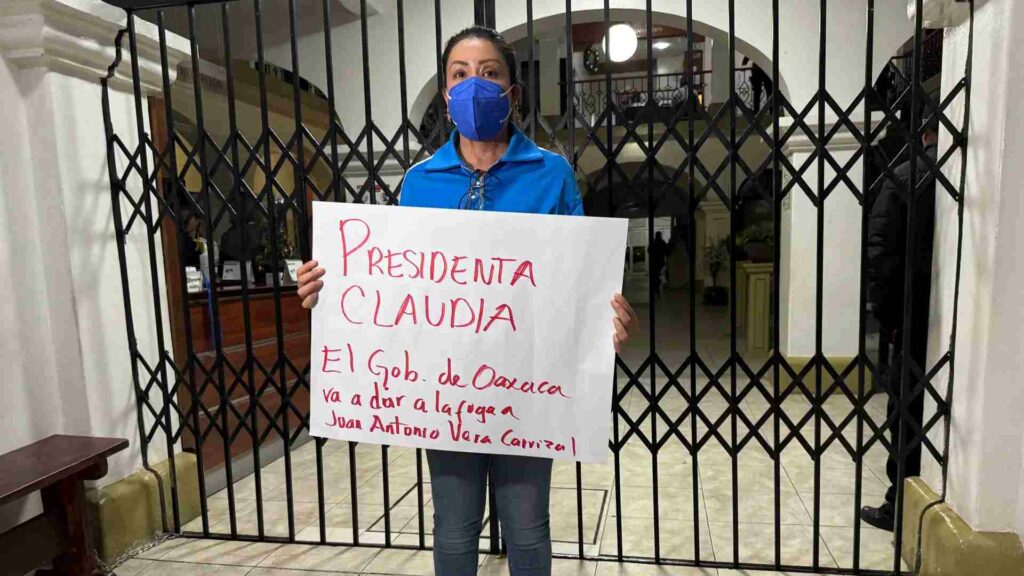 PRESIDENTA
CLAUDIA
El Gob. de Oaxaca
va a dar a la fuga a
Juan Antonio Vera Carrizal